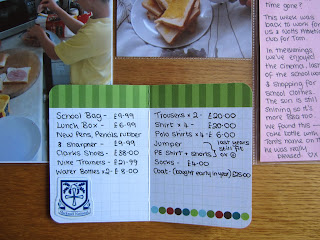 School Bag - £9.99
Lunch Box - £6.99
New Pens, Pencils, rubber
& Sharpener - £9.99
Clarks Shoes - £38.00
Nike Trainers - £21.99
Water Bottles x2 - £8.00
Trousers x2 - £20.00
Shirt x4 - £20.00
Polo Shirts x4 - £6.00
Jumper
PE Shirt + Shorts
last years
still fit
ok ☺
Socks - £4.00
Coat - (bought early in year) £25.00
time gone?
This week was
back to work for
us & Watts
club for Tom.
In the evenings
we've enjoyed
the cinema, last
of the school
& shopping for
School clothes.
The sun is still
shining so it's
more
We found this
cake bottle
Tom's name on it
he was really
pleased. xx